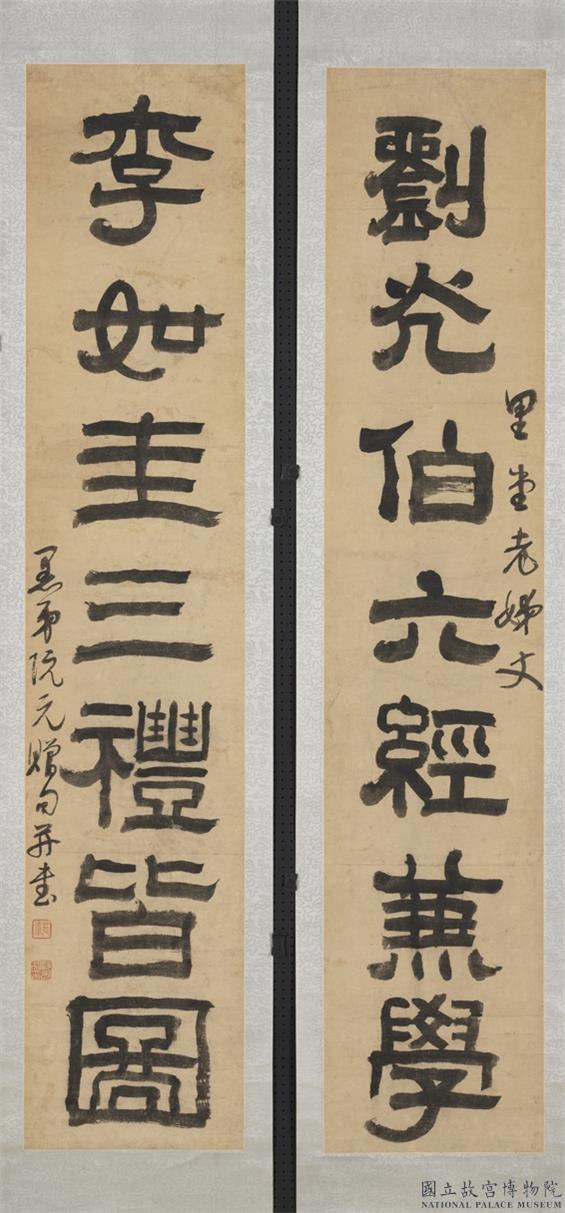 里堂老姊丈
劉光伯六經兼學
李如圭三禮皆圖
愚弟阮元贈句并書
國立故宮博物院
NATIONAL PALACE MUSEUM